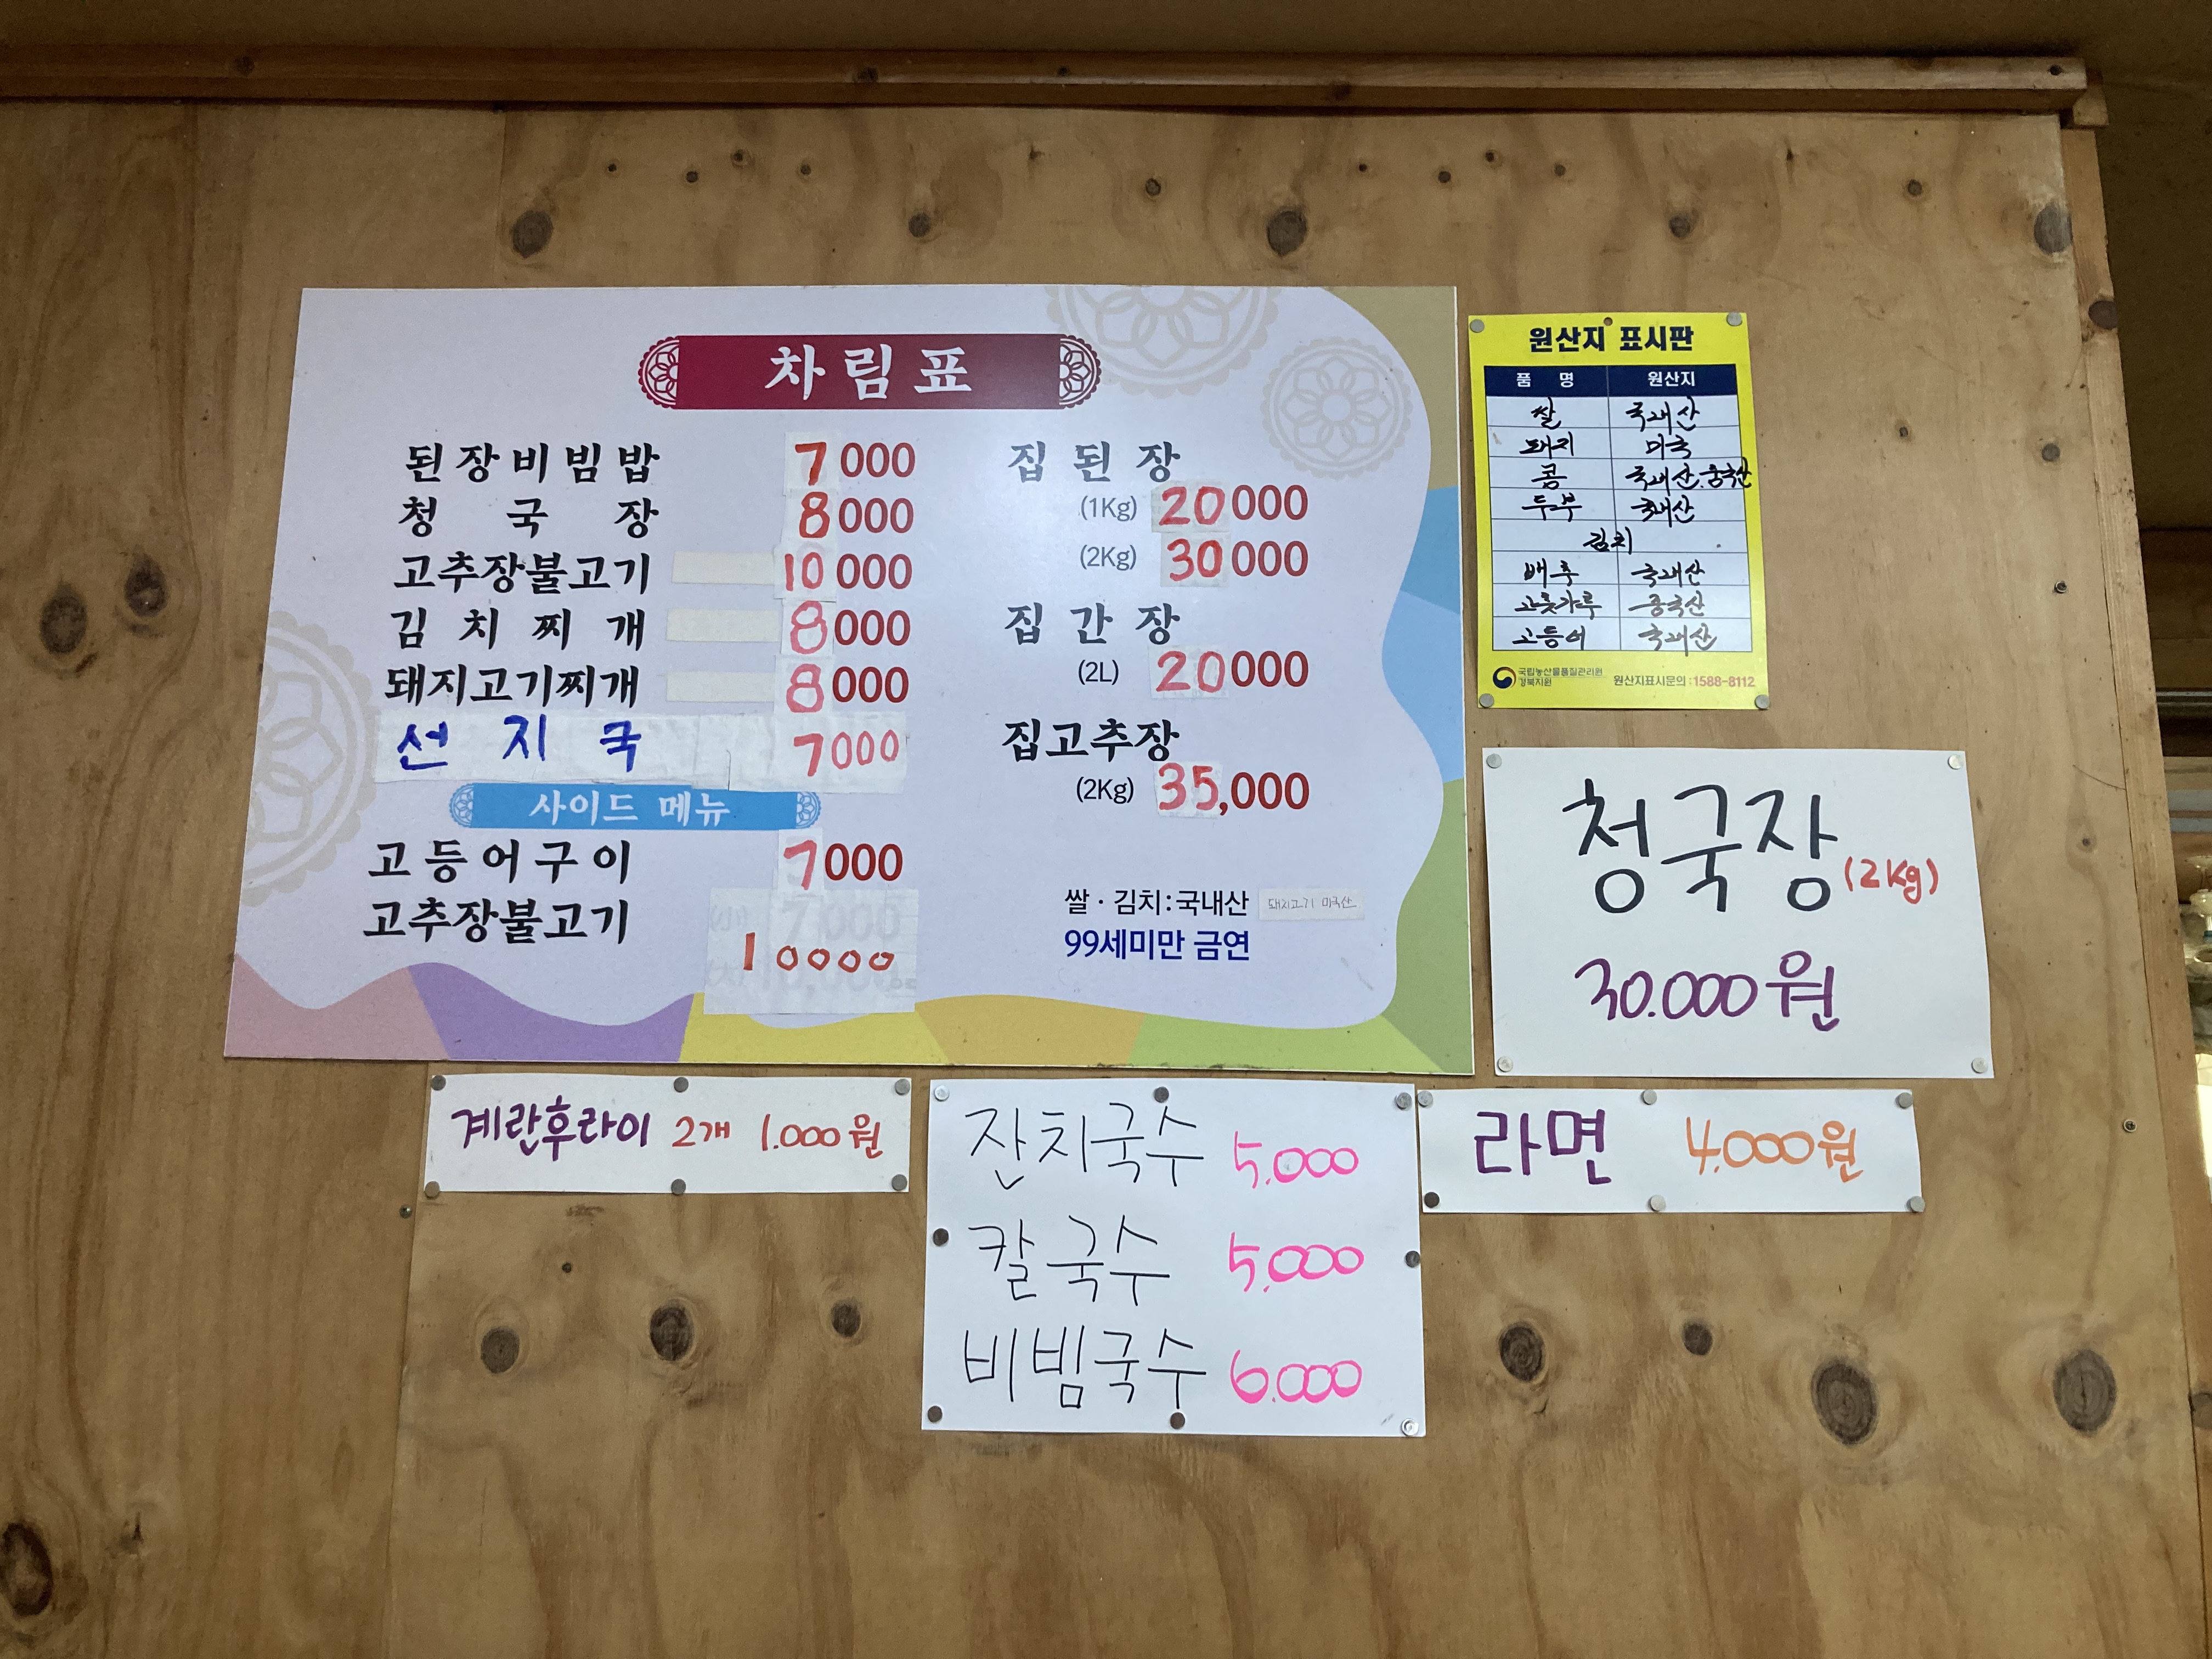 차림표
된장비빔밥 7000
청국장 8000
고추장불고기 10000
김치찌개 8000
돼지고기찌개 8000
선지국 7000
사이드 메뉴
고등어구이 7000
고추장불고기
10000
집된장
(1Kg) 20000
(2Kg) 30000
집간장
(2L) 20000
집고추장
(2Kg) 35,000
쌀·김치:국내산 돼지고기 미국산
99세미만 금연
원산지 표시판
품명 원산지
쌀 국내산
돼지 미국
콩 국내산.중국산
두부 국내산
김치
배추 국내산
고춧가루 중국산
고등어 국내산
국립농산물품질관리원
경북지원
원산지표시문의:1588-8112
청국장(2Kg)
30.000원
계란후라이 2개 1.000원
잔치국수 5,000
칼국수 5,000
비빔국수 6.000
라면 4.000원